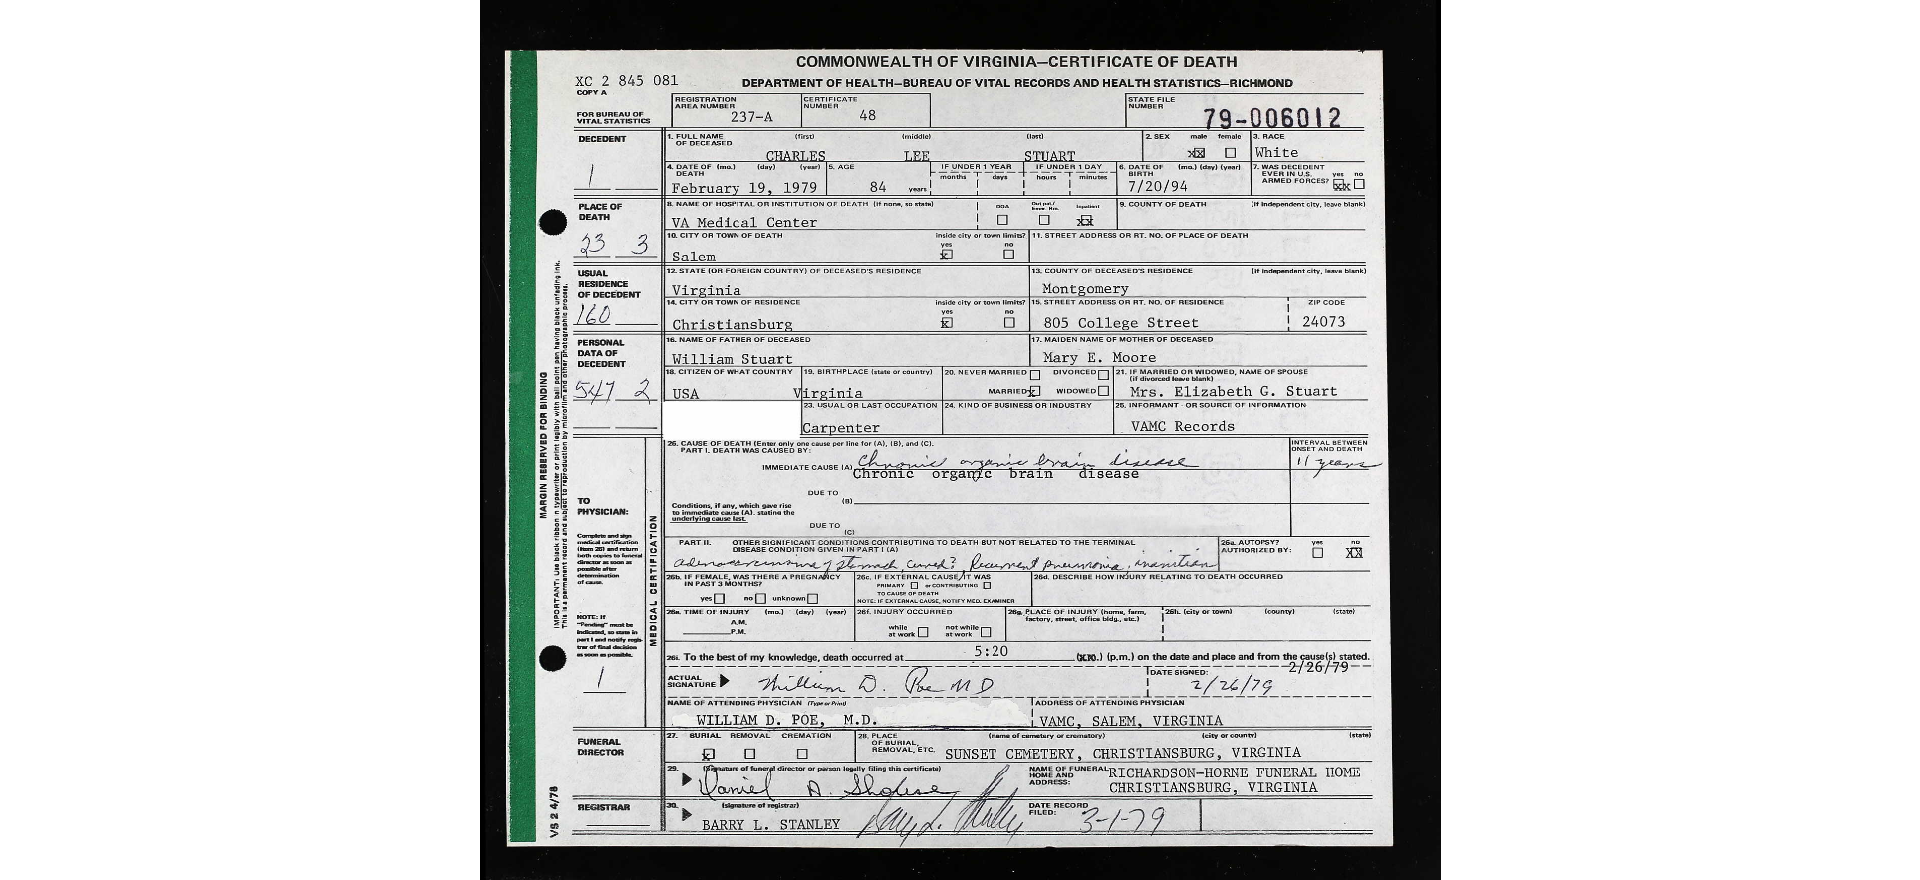 COMMONWEALTH OF VIRGINIA—CERTIFICATE OF DEATH
XC 2 845 081
DEPARTMENT OF HEALTH—BUREAU OF VITAL RECORDS AND HEALTH STATISTICS—RICHMOND
COPY A
FOR BUREAU OF VITAL STATISTICS
REGISTRATION AREA NUMBER 237-A
CERTIFICATE NUMBER 48
STATE FILE NUMBER 79-006012
DECEDENT
1
1. FULL NAME OF DECEASED (first) (middle) (last)
CHARLES LEE STUART
2. SEX male female
xx
3. RACE
White
4. DATE OF DEATH (mo.) (day) (year)
February 19, 1979
5. AGE
84 years
IF UNDER 1 YEAR months days
IF UNDER 1 DAY hours minutes
6. DATE OF BIRTH (mo.) (day) (year)
7/20/94
7. WAS DECEDENT EVER IN U.S. ARMED FORCES? yes no
xx
PLACE OF DEATH
23 3
8. NAME OF HOSPITAL OR INSTITUTION OF DEATH (if none, so state)
VA Medical Center
DOA
Inpatient
xx
9. COUNTY OF DEATH (if independent city, leave blank)
10. CITY OR TOWN OF DEATH
Salem
inside city or town limits? yes no
x
11. STREET ADDRESS OR RT. NO. OF PLACE OF DEATH
USUAL RESIDENCE OF DECEDENT
160
12. STATE (OR FOREIGN COUNTRY) OF DECEASED'S RESIDENCE
Virginia
13. COUNTY OF DECEASED'S RESIDENCE (if independent city, leave blank)
Montgomery
14. CITY OR TOWN OF RESIDENCE
Christiansburg
inside city or town limits? yes no
x
15. STREET ADDRESS OR RT. NO. OF RESIDENCE
805 College Street
ZIP CODE
24073
PERSONAL DATA OF DECEDENT
547 2
16. NAME OF FATHER OF DECEASED
William Stuart
17. MAIDEN NAME OF MOTHER OF DECEASED
Mary E. Moore
18. CITIZEN OF WHAT COUNTRY
USA
19. BIRTHPLACE (state or country)
Virginia
20. NEVER MARRIED DIVORCED
MARRIED x WIDOWED
21. IF MARRIED OR WIDOWED, NAME OF SPOUSE (if divorced leave blank)
Mrs. Elizabeth G. Stuart
23. USUAL OR LAST OCCUPATION
Carpenter
24. KIND OF BUSINESS OR INDUSTRY
25. INFORMANT - OR SOURCE OF INFORMATION
VAMC Records
MARGIN RESERVED FOR BINDING
IMPORTANT: Use black ribbon in typewriter or print legibly with ball point pen having black unfading ink.
This is a permanent record and subject to reproduction by microfilm and other photographic process.
MEDICAL CERTIFICATION
TO PHYSICIAN:
Complete and sign medical certification (Item 26) and return both copies to funeral director as soon as possible after determination of cause.
NOTE: If "Pending" must be indicated, so state in part I and notify registrar of final decision as soon as possible.
1
26. CAUSE OF DEATH (Enter only one cause per line for (A), (B), and (C).
PART I. DEATH WAS CAUSED BY:
INTERVAL BETWEEN ONSET AND DEATH
IMMEDIATE CAUSE (A) Chronic organic brain disease
11 years
Chronic organic brain disease
DUE TO (B)
Conditions, if any, which gave rise to immediate cause (A). stating the underlying cause last.
DUE TO (C)
PART II. OTHER SIGNIFICANT CONDITIONS CONTRIBUTING TO DEATH BUT NOT RELATED TO THE TERMINAL DISEASE CONDITION GIVEN IN PART I (A)
adenocarcinoma of stomach, cured? Recurrent pneumonia, inanition
26a. AUTOPSY? AUTHORIZED BY: yes no
XX
26b. IF FEMALE, WAS THERE A PREGNANCY IN PAST 3 MONTHS?
yes no unknown
26c. IF EXTERNAL CAUSE, IT WAS
PRIMARY or CONTRIBUTING
TO CAUSE OF DEATH
NOTE: IF EXTERNAL CAUSE, NOTIFY MED. EXAMINER
26d. DESCRIBE HOW INJURY RELATING TO DEATH OCCURRED
26e. TIME OF INJURY (mo.) (day) (year)
A.M.
P.M.
26f. INJURY OCCURRED
while at work not while at work
26g. PLACE OF INJURY (home, farm, factory, street, office bldg., etc.)
26h. (city or town) (county) (state)
26i. To the best of my knowledge, death occurred at 5:20 (p.m.) on the date and place and from the cause(s) stated.
2/26/79
ACTUAL SIGNATURE William D. Poe MD
DATE SIGNED: 2/26/79
NAME OF ATTENDING PHYSICIAN (Type or Print)
WILLIAM D. POE, M.D.
ADDRESS OF ATTENDING PHYSICIAN
VAMC, SALEM, VIRGINIA
FUNERAL DIRECTOR
27. BURIAL REMOVAL CREMATION
x
28. PLACE OF BURIAL, REMOVAL, ETC. (name of cemetery or crematory) (city or county) (state)
SUNSET CEMETERY, CHRISTIANSBURG, VIRGINIA
29. (Signature of funeral director or person legally filing this certificate)
Daniel A.
NAME OF FUNERAL HOME AND ADDRESS: RICHARDSON-HORNE FUNERAL HOME
CHRISTIANSBURG, VIRGINIA
REGISTRAR
30. (signature of registrar)
BARRY L. STANLEY Barry L. Stanley
DATE RECORD FILED: 3-1-79
VS 2 4/78